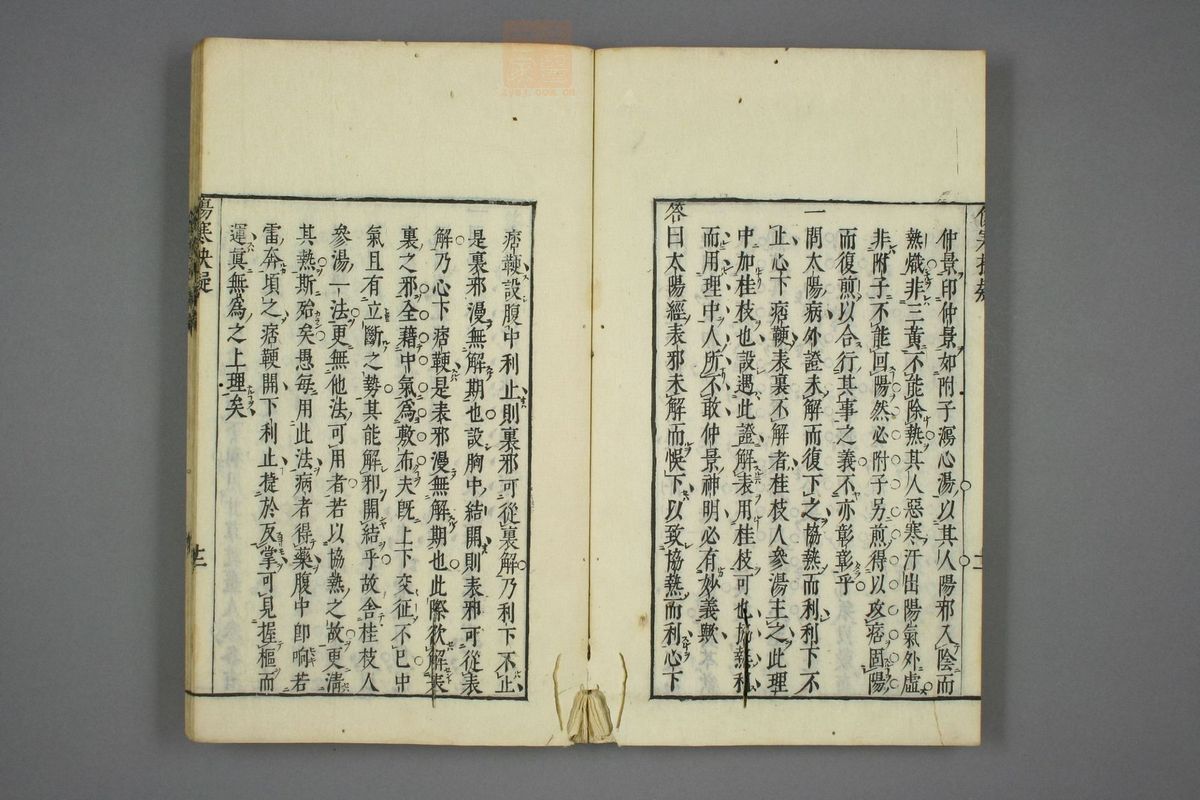 仲景印仲景如附子瀉心湯以其人陽邪入陰而
熱熾非三黃不能除熱其人惡寒汗出陽氣外虛
非附子不能回陽然必附子另煎得以攻痞固陽
而復煎以合行其事之義不亦彰彰乎
一問太陽病外證未解而復下之協熱而利利下不
止心下痞鞕表裏不解者桂枝人參湯主之此理
中加桂枝也設遇此證解表用桂枝可也協熱利
而用理中人所不敢仲景神明必有妙義歟
答曰太陽經表邪未解而悞下以致協熱而利心下
痞鞕設腹中利止則裏邪可從裏解乃利下不止
是裏邪漫無解期也設胸中結開則表邪可從表
解乃心下痞鞕是表邪漫無解期也此際欲解表
裏之邪全藉中氣為敷布夫既上下交征不已中
氣且有立斷之勢其能解邪開結乎故舍桂枝人
參湯一法更無他法可用者若以協熱之故更清
其熱斯殆矣愚每用此法病者得藥腹中卽响若
雷奔頃之痞鞕開下利止捷於反掌可見握樞而
運眞無為之上理矣
傷寒抉疑
十二